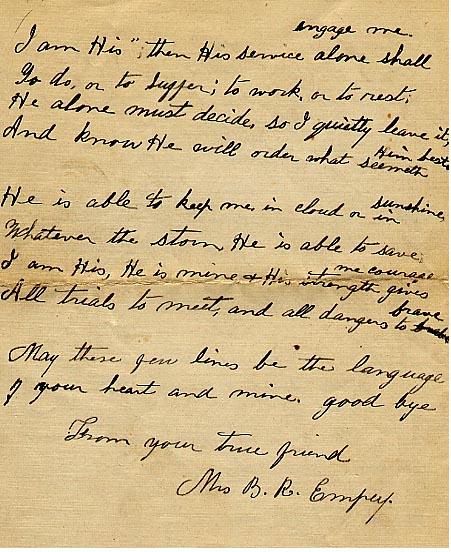 engage me.
I am His"; then His service alone shall
To do, or to suffer; to work, or to rest;
He alone must decide, so I quietly leave it,
Him best
And know He will order what seemeth
sunshine,
He is able to keep me, in cloud or in
Whatever the storm, He is able to save;
me courage
I am His, He is mine & His strength gives
brave
All trials to meet, and all dangers to
May these few lines be the language
of your heart and mine. good bye
From your true friend
Mrs B. R. Empey.